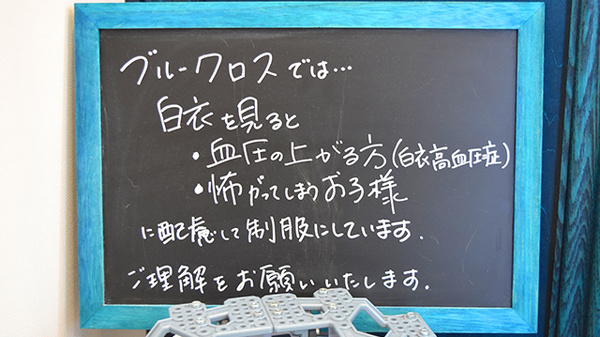 ブルークロスでは…
白衣を見ると
・血圧の上がる方(白衣高血圧症)
・怖がってしまうお子様
に配慮して制服にしています.
ご理解をお願いいたします.